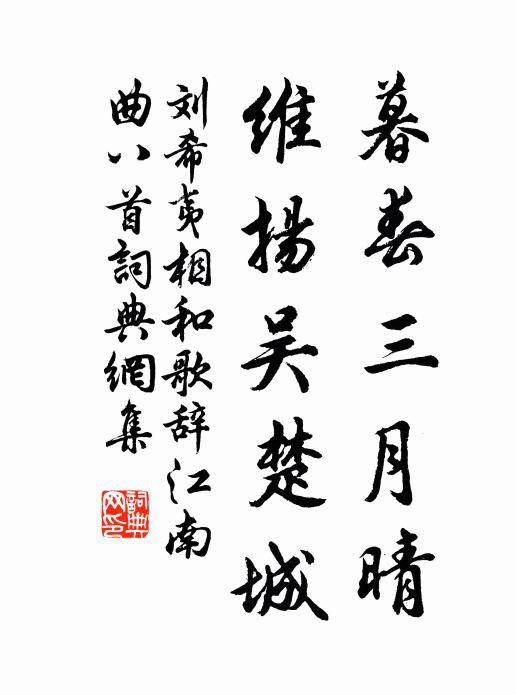 暮春三月晴
維揚吴楚城
刘希夷相和歌辞江南
曲八首詞典網集
詞典
网印